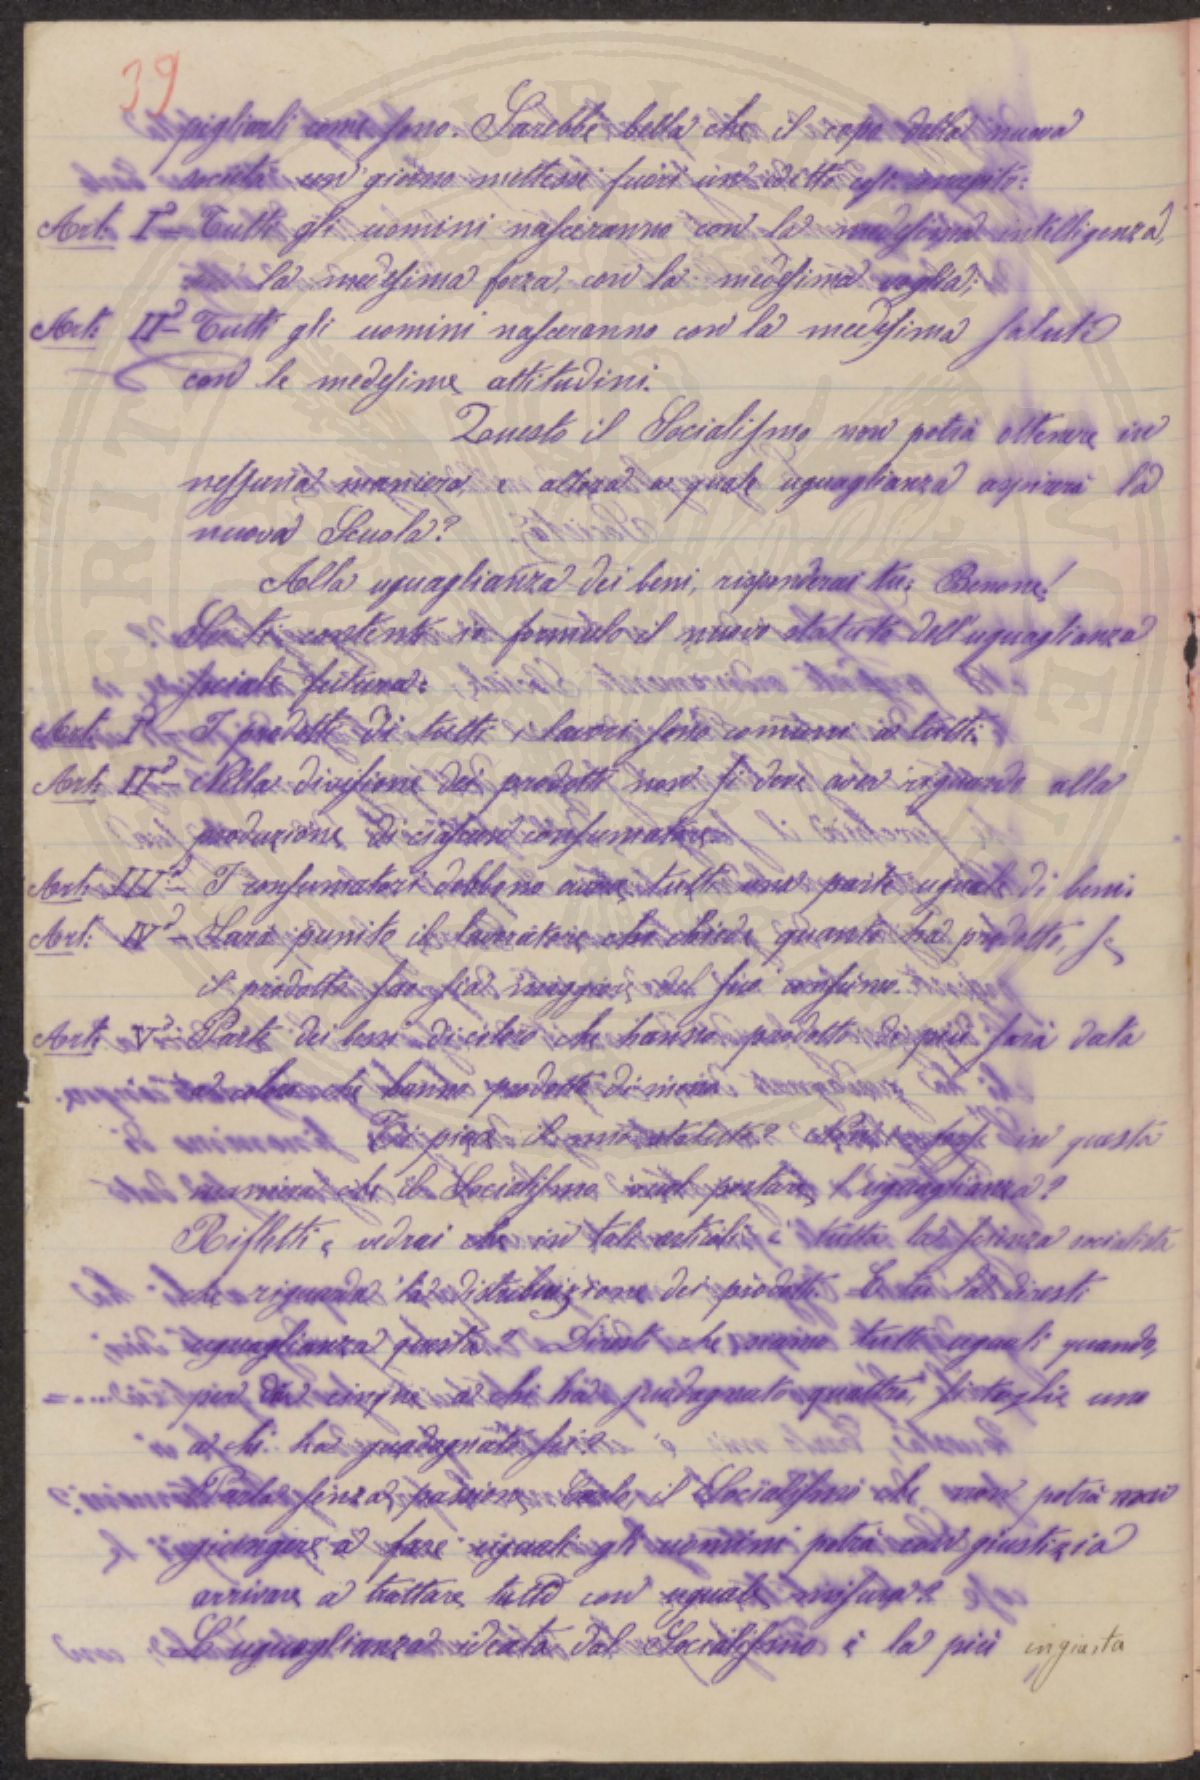 39
pigliarli come sono. Sarebbe bella che il capo della nuova
società un giorno mettesse fuori un editto così concepito:
Art. I° – Tutti gli uomini nasceranno con la medesima intelligenza,
con la medesima forza, con la medesima voglia;
Art. II° – Tutti gli uomini nasceranno con la medesima salute
con le medesime attitudini.
Questo il Socialismo non potrà ottenere in
nessuna maniera, e allora a quale uguaglianza aspirerà la
nuova Scuola?
Alla uguaglianza dei beni, risponderai tu: Benone!
Se ti contenti io formulo il nuovo statuto dell'uguaglianza
sociale futura:
Art. I° – I prodotti di tutti i lavori sono comuni a tutti.
Art. II° – Nella divisione dei prodotti non si deve aver riguardo alla
produzione di ciascun consumatore.
Art. III° – I consumatori debbono avere tutti una parte uguale di beni.
Art. IV° – Sarà punito il lavoratore che chiede quanto ha prodotto, se
il prodotto suo sia maggiore del suo consumo.
Art. V° – Parte dei beni di coloro che hanno prodotto di più sarà data
a coloro che hanno prodotto di meno.
Ti piace il mio statuto? Non è forse in questa
maniera che il Socialismo vuol portare l'uguaglianza?
Rifletti e vedrai che in tali articoli è tutta la scienza socialista
che riguarda la distribuzione dei prodotti. E tu la diresti
uguaglianza questa? Diresti che siamo tutti uguali quando,
per dar cinque a chi ha guadagnato quattro, si toglie uno
a chi ha guadagnato sei?
Parla senza passione, Carlo, il Socialismo che non potrà mai
giungere a fare uguali gli uomini potrà con giustizia
arrivare a trattare tutti con uguale misura?
L'uguaglianza ideata dal Socialismo è la più ingiusta